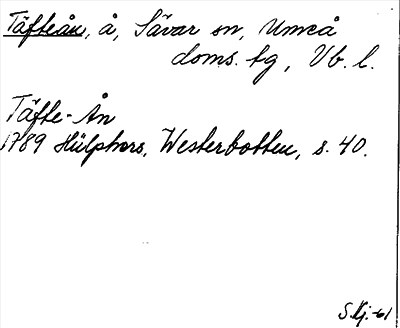 Täfteån, å, Sävar sn, Umeå
doms. tg, Vb. l.
Täfte-Ån
1789 Hülphers, Westerbotten, s. 40.
S.Kj.-61